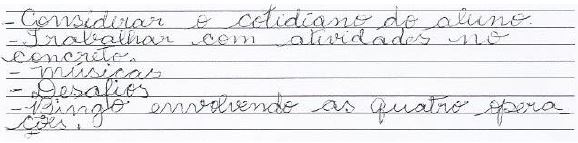 - Considerar o cotidiano do aluno.
- Trabalhar com atividades no
concreto.
- Músicas
- Desafios
- Bingo envolvendo as quatro opera-
ções.